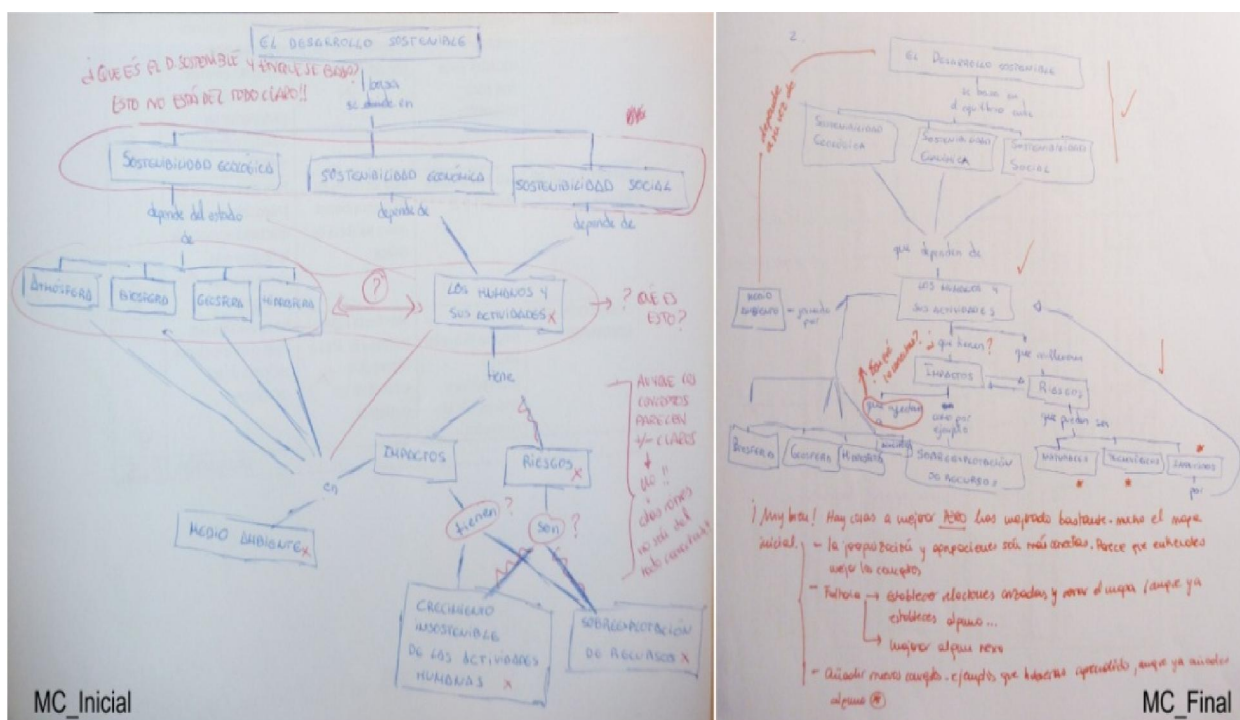 EL DESARROLLO SOSTENIBLE
¿QUE ÉS EL D. SOSTENIBLE Y EN QUE SE BASA?
ESTO NO ESTÁ DEL TODO CLARO!!
basa
en
SOSTENIBILIDAD ECOLÓGICA
SOSTENIBILIDAD ECONÓMICA
SOSTENIBILIDAD SOCIAL
depende del estado
de
depende de
depende de
ATMÓSFERA
BIOSFERA
GEOSFERA
HIDROSFERA
?
LOS HUMANOS Y
SUS ACTIVIDADES X
? QUÉ ES
ESTO?
tiene
AUNQUE LOS
CONCEPTOS
PARECEN
+/- CLAROS
NO !!
IMPACTOS
RIESGOS X
en
MEDIO AMBIENTE X
tienen ?
son ?
CRECIMIENTO
INSOSTENIBLE
DE LAS ACTIVIDADES
HUMANAS X
SOBREEXPLOTACIÓN
DE RECURSOS X
MC_Inicial
2.
EL DESARROLLO SOSTENIBLE
se basa en
el equilibrio entre
depende
a su vez de
SOSTENIBILIDAD
ECOLÓGICA
SOSTENIBILIDAD
ECONÓMICA
SOSTENIBILIDAD
SOCIAL
que dependen de
LOS HUMANOS Y
SUS ACTIVIDADES
MEDIO
AMBIENTE
formado
por
¿ que tienen ?
que conllevan
IMPACTOS
RIESGOS
como por
ejemplo
que pueden ser
BIOSFERA
GEOSFERA
HIDROSFERA
SOBREEXPLOTACIÓN
DE RECURSOS
NATURALES
TECNOLÓGICOS
por
¡Muy bien! Hay cosas a mejorar PERO has mejorado bastante-mucho el mapa
inicial.
- la jerarquización y agrupaciones son más correctas. Parece que entiendes
mejor los conceptos
- Faltaría → establecer relaciones cruzadas y cerrar el mapa (aunque ya
estableces alguna...
→ mejorar algún nexo
- Añadir nuevos conceptos - ejemplos que hubieras aprendido, aunque ya añades
alguno *
MC_Final